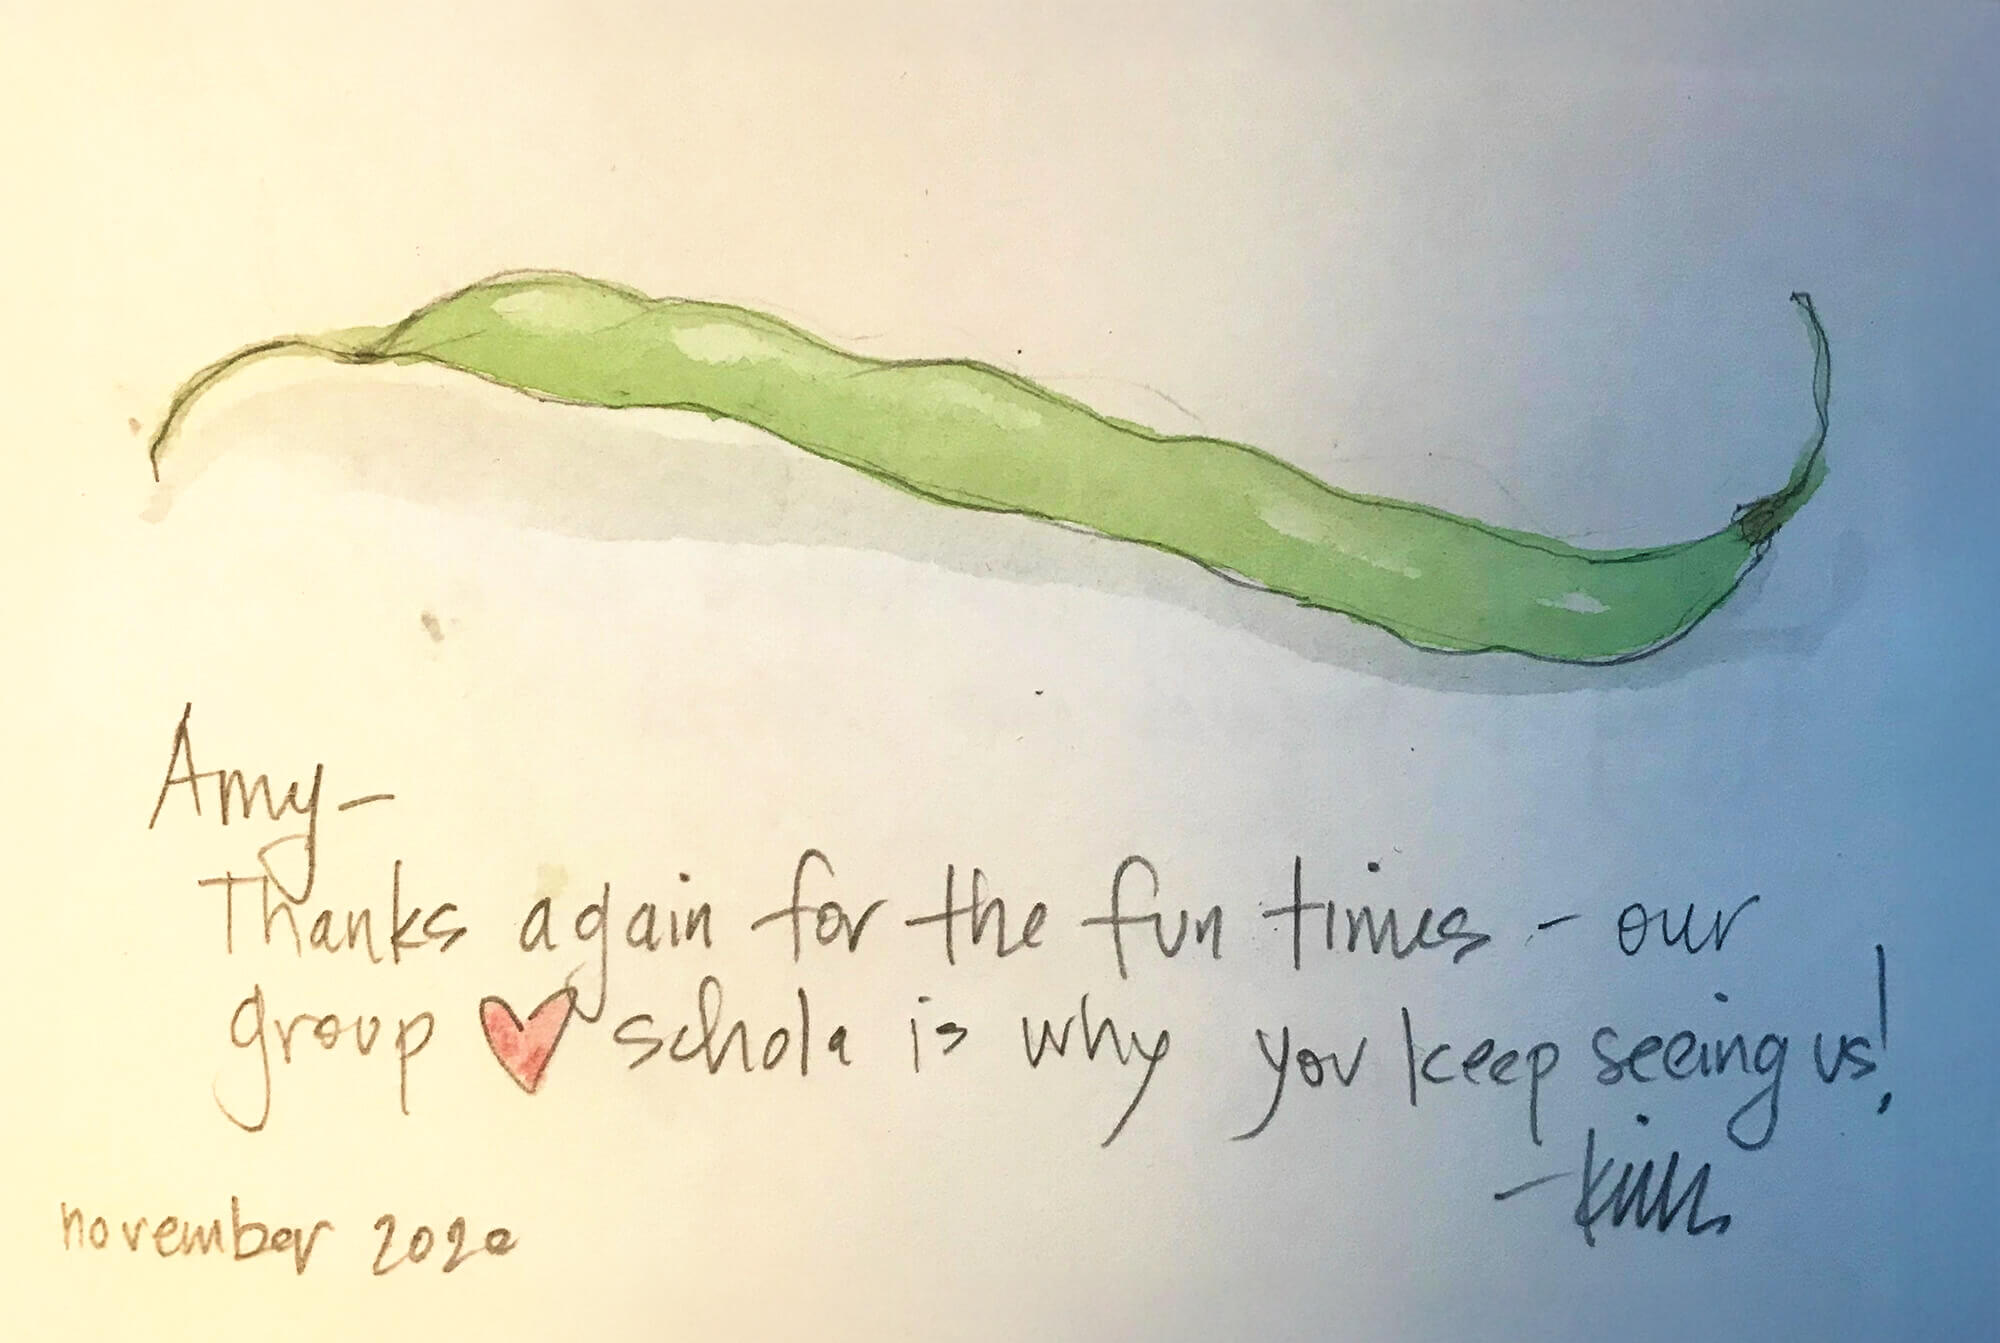 Amy-
Thanks again for the fun times - our
group ♥ schola is why you keep seeing us!
-Kim
november 2020